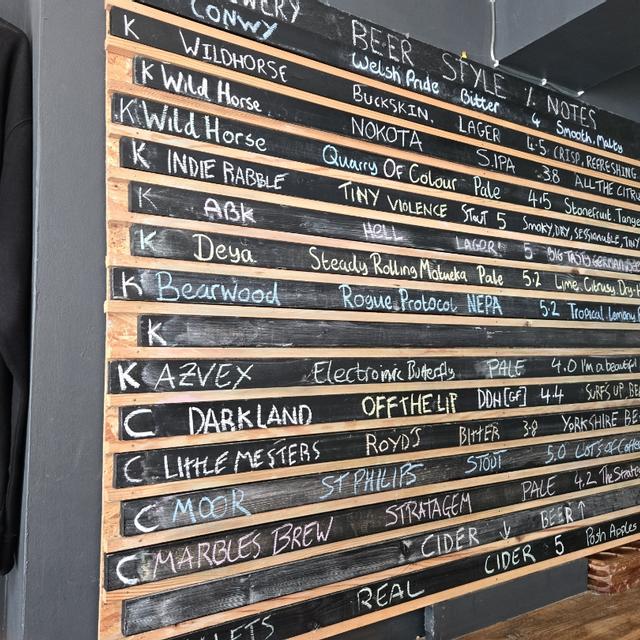 WERY BEER STYLE % NOTES
CONWY Welsh Pride Bitter 4 Smooth, Malty
K WILDHORSE BUCKSKIN. LAGER 4.5 CRISP, REFRESHING.
K Wild Horse NOKOTA S.IPA .38 ALL THE CITRU
K Wild Horse Quarry Of Colour Pale 4.5 Stonefruit, Tange
K INDIE RABBLE TINY VIOLENCE Stout 5 SMOKY, DRY, SESSIONABLE, TINY
K ABK HELL LAGER 5 BIG TASTY GERMAN
K Deya Steady Rolling Motueka Pale 5.2 Lime, Citrusy, Dry-H
K Bearwood Rogue Protocol NEPA 5.2 Tropical, Lemony,
K
K AZVEX Electronic Butterfly PALE 4.0 I'm a beautiful
C DARKLAND OFF THE LIP DDH [GF] 4.4 SURFS UP BE
C LITTLE MESTERS ROYD'S BITTER 3.8 YORKSHIRE BE
C MOOR ST PHILIPS STOUT 5.0 LOTS OF Coffee
C MARBLES BREW STRATAGEM PALE 4.2 The Strate
CIDER ↓ BEER ↑
LLETS REAL CIDER 5 Posh Apples